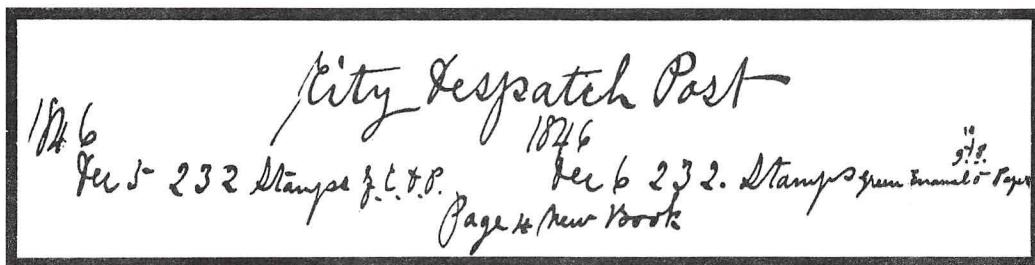 City Despatch Post
1846 1846
Dec 5 232 Stamps C. D. P. Dec 6 232. Stamps Green Enamel Paper
Page 4 New Book